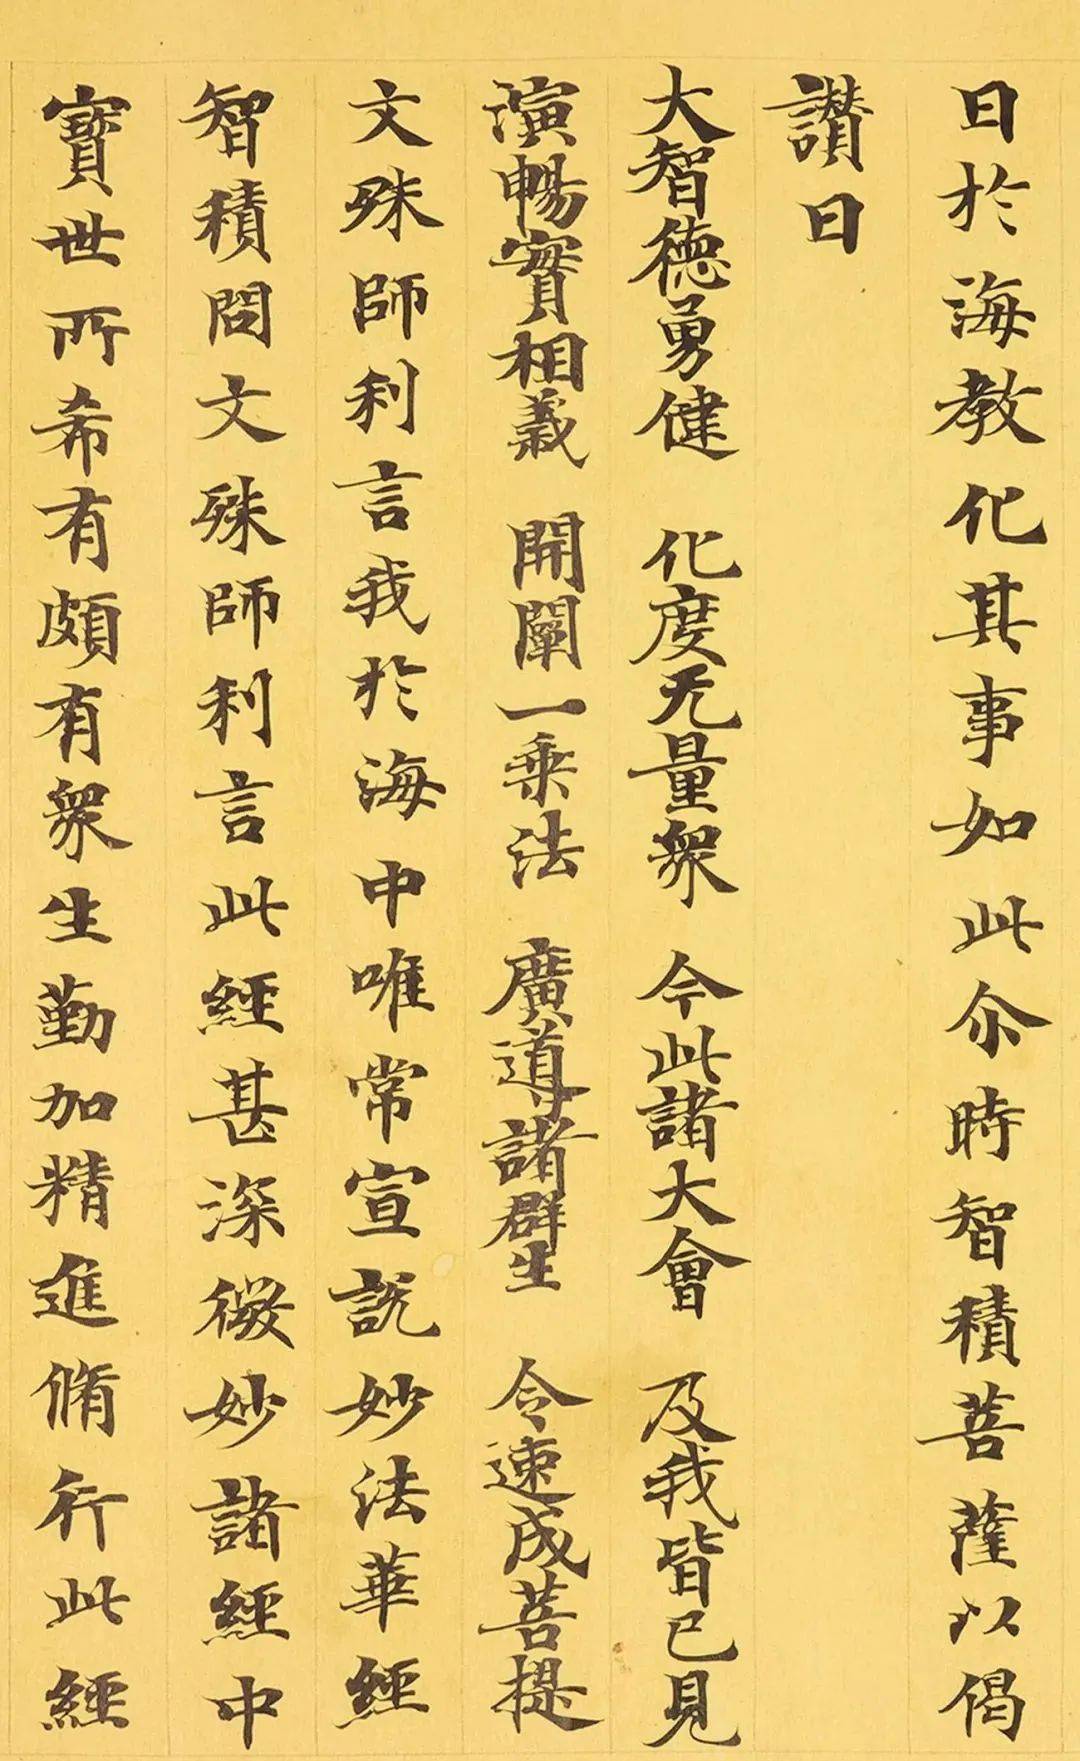 曰於海教化其事如此尒時智積菩薩以偈
讃曰
大智德勇健 化度无量衆 今此諸大會 及我皆已見
演暢實相義 開闡一乘法 廣導諸群生 令速成菩提
文殊師利言我於海中唯常宣說妙法華經
智積問文殊師利言此經甚深微妙諸經中
寶世所希有頗有衆生勤加精進脩行此經